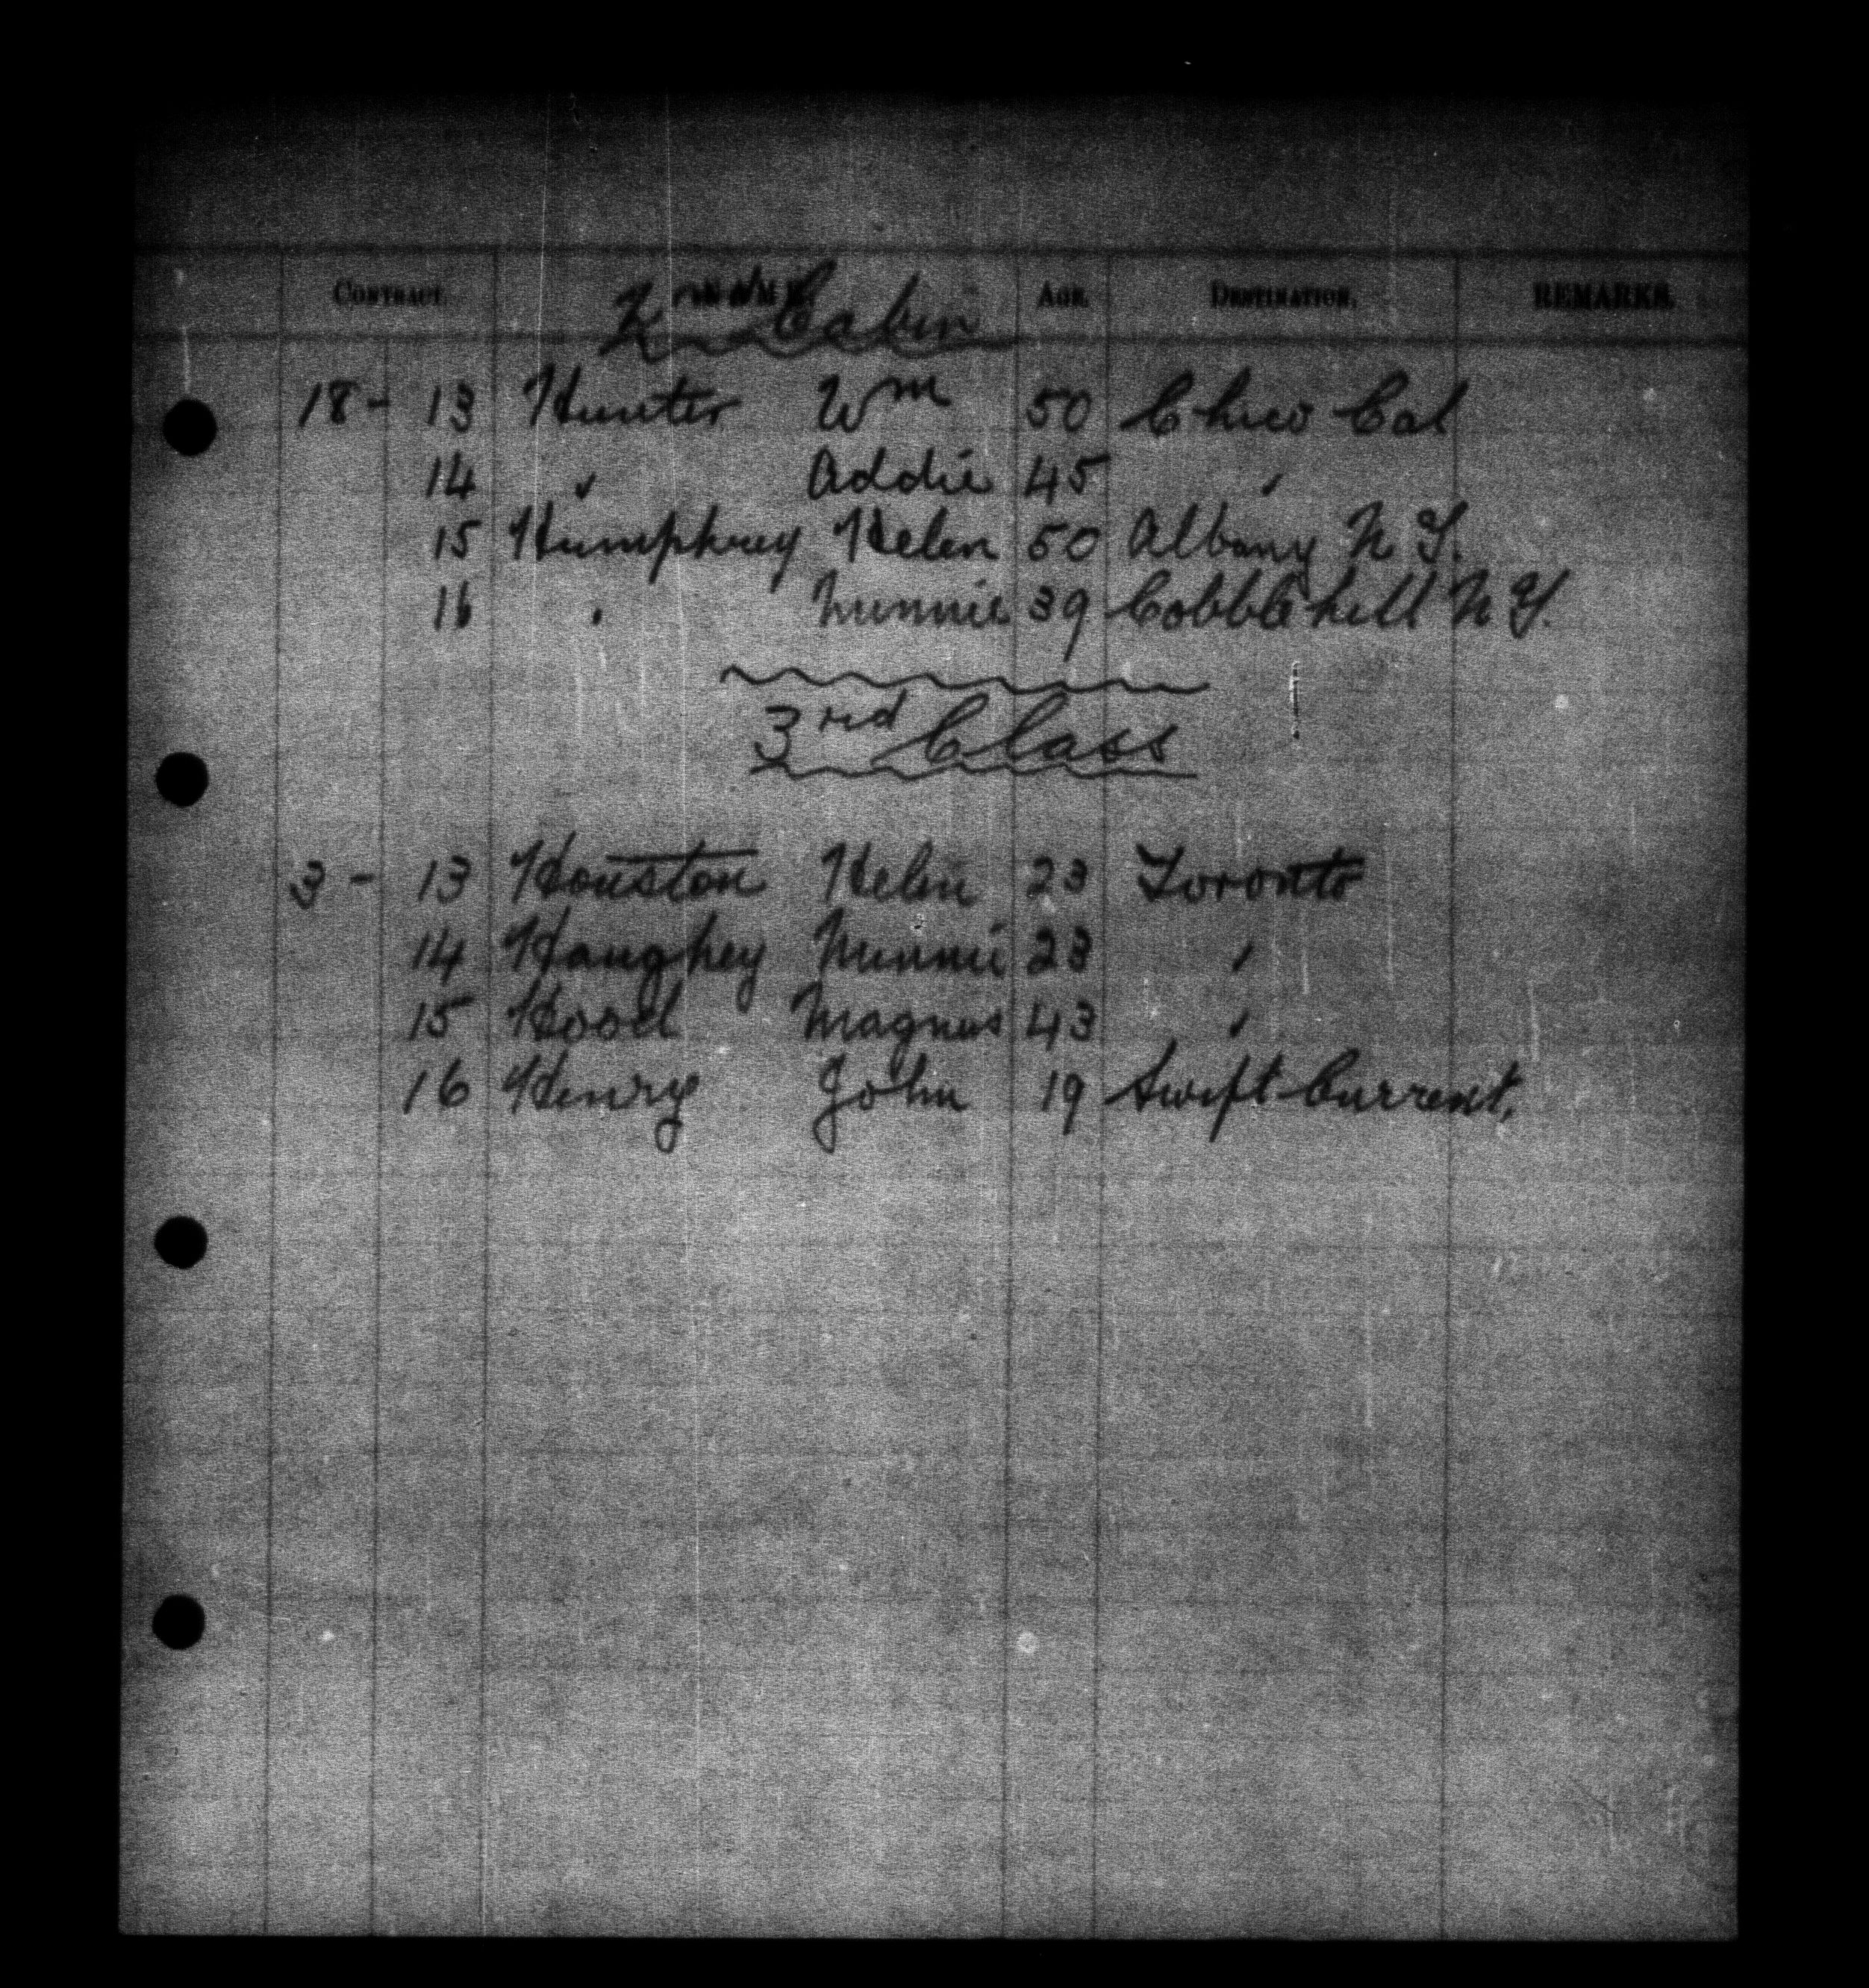 CONTRACT. NAME. AGE. DESTINATION. REMARKS.
2nd Cabin
18 - 13 Hunter Wm 50 Chico Cal
14 " Addie 45 "
15 Humphrey Helen 50 Albany N Y.
16 " Minnie 39 Cobblehill N Y.
3rd Class
3 - 13 Houston Helen 23 Toronto
14 Haughey Minnie 23 "
15 Hood Magnus 43 "
16 Henry John 19 Swift Current.